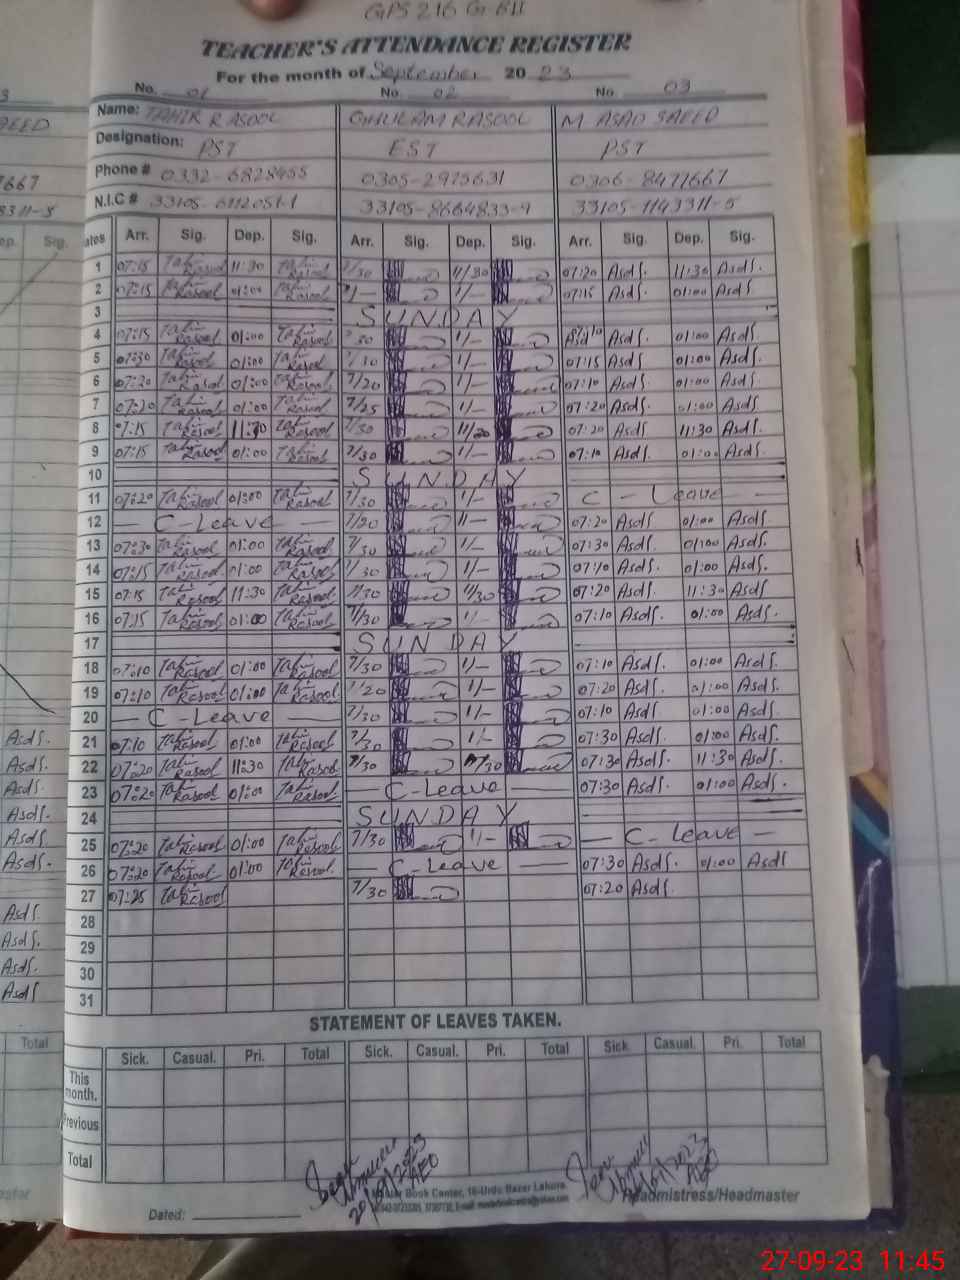 GPS 216 GB II
TEACHER'S ATTENDANCE REGISTER
For the month of September 2023
No. 01 No. 02 No. 03
Name: TAHIR RASOOL GHULAM RASOOL M ASAD SAEED
Designation: PST EST PST
Phone # 0332-6828455 0305-2975631 0306-8477667
N.I.C # 33105-6112051-1 33105-8664833-9 33105-1143311-5
Dates Arr. Sig. Dep. Sig. Arr. Sig. Dep. Sig. Arr. Sig. Dep. Sig.
1 07:15 Tahir Rasool 11:30 Tahir Rasool 7/30 11/30 07:20 Asdf. 11:30 Asdf.
2 07:15 Tahir Rasool 01:00 Tahir Rasool 1/- 07:15 Asdf. 01:00 Asdf
3 SUNDAY
4 07:15 Tahir Rasool 01:00 Tahir Rasool 1/- Asdf. 01:00 Asdf.
5 07:30 Tahir Rasool 01:00 Tahir Rasool 7/30 1/- 07:15 Asdf. 01:00 Asdf.
6 07:20 Tahir Rasool 01:00 Tahir Rasool 7/20 1/- 07:10 Asdf. 01:00 Asdf.
7 07:20 Tahir Rasool 01:00 Tahir Rasool 7/25 1/- 07:20 Asdf. 01:00 Asdf.
8 07:15 Tahir Rasool 11:30 Tahir Rasool 7/30 11/30 07:20 Asdf. 11:30 Asdf.
9 07:15 Tahir Rasool 01:00 Tahir Rasool 7/30 1/- 07:10 Asdf. 01:00 Asdf.
10 SUNDAY
11 07:20 Tahir Rasool 01:00 Tahir Rasool 7/30 1/- C - Leave
12 C-Leave 7/20 07:20 Asdf 01:00 Asdf.
13 07:30 Tahir Rasool 01:00 Tahir Rasool 7/30 1/- 07:30 Asdf. 01:00 Asdf.
14 07:15 Tahir Rasool 01:00 Tahir Rasool 7/30 1/- 07:10 Asdf. 01:00 Asdf.
15 07:15 Tahir Rasool 11:30 Tahir Rasool 7/30 11/30 07:20 Asdf. 11:30 Asdf.
16 07:15 Tahir Rasool 01:00 Tahir Rasool 7/30 1/- 07:10 Asdf. 01:00 Asdf.
17 SUNDAY
18 07:10 Tahir Rasool 01:00 Tahir Rasool 7/30 1/- 07:10 Asdf. 01:00 Asdf.
19 07:10 Tahir Rasool 01:00 Tahir Rasool 7/20 1/- 07:20 Asdf. 01:00 Asdf.
20 C-Leave 7/30 1/- 07:10 Asdf. 01:00 Asdf.
21 07:10 Tahir Rasool 01:00 Tahir Rasool 7/30 1/- 07:30 Asdf. 01:00 Asdf.
22 07:20 Tahir Rasool 11:30 Tahir Rasool 7/30 11/30 07:30 Asdf. 11:30 Asdf.
23 07:20 Tahir Rasool 01:00 Tahir Rasool C-Leave 07:30 Asdf. 01:00 Asdf.
24 SUNDAY
25 07:20 Tahir Rasool 01:00 Tahir Rasool 7/30 1/- C-Leave
26 07:20 Tahir Rasool 01:00 Tahir Rasool. C-Leave 07:30 Asdf. 01:00 Asdf
27 07:25 Tahir Rasool 7/30 07:20 Asdf.
28
29
30
31
STATEMENT OF LEAVES TAKEN.
Sick. Casual. Pri. Total Sick. Casual. Pri. Total Sick Casual. Pri. Total
This month.
Previous
Total
AEO AEO
Book Center, 16-Urdu Bazar Lahore
Dated: Headmistress/Headmaster
27-09-23 11:45